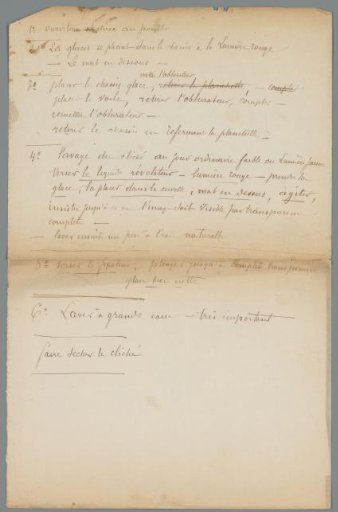 au point
2° La glace se place dans le chassis à la lumière rouge
— Le mat en dessous —
mettre l'obturateur
3° placer le chassis glace, retirer la planchette, — compter
placer le voile, retirer l'obturateur, compter —
remettre l'obturateur —
retirer le chassis en refermant la planchette —
4° Lavage du cliché au jour ordinaire, faible ou lumière jaune
Verser le liquide révélateur — lumière rouge — prendre la
glace, la placer dans la cuvette, mat en dessus, agiter,
jusqu'à ce que l'image soit visible par transparence
complète —
— laver ensuite un peu à l'eau naturelle
5° Verser le fixateur, jusqu'à complète transparence
glace bien nette
6° Laver à grande eau — très important
faire sécher le cliché